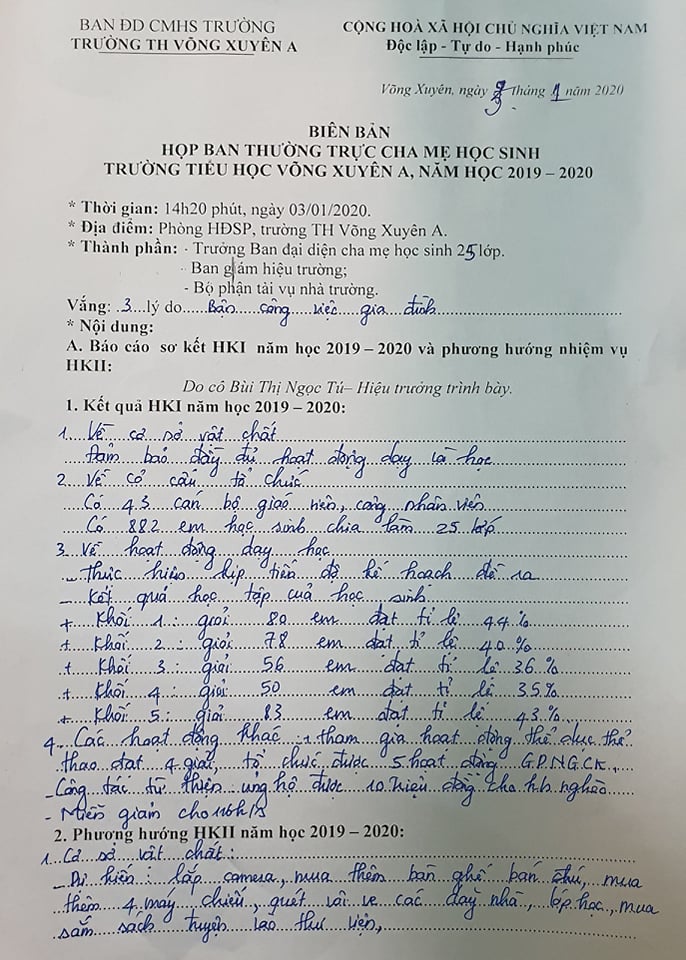 BAN ĐD CMHS TRƯỜNG
TRƯỜNG TH VÕNG XUYÊN A
CỘNG HOÀ XÃ HỘI CHỦ NGHĨA VIỆT NAM
Độc lập - Tự do - Hạnh phúc
Võng Xuyên, ngày 3 tháng 1 năm 2020
BIÊN BẢN
HỌP BAN THƯỜNG TRỰC CHA MẸ HỌC SINH
TRƯỜNG TIỂU HỌC VÕNG XUYÊN A, NĂM HỌC 2019 – 2020
* Thời gian: 14h20 phút, ngày 03/01/2020.
* Địa điểm: Phòng HĐSP, trường TH Võng Xuyên A.
* Thành phần: - Trưởng Ban đại diện cha mẹ học sinh 25 lớp.
- Ban giám hiệu trường;
- Bộ phận tài vụ nhà trường.
Vắng: 3 lý do Bận công việc gia đình
* Nội dung:
A. Báo cáo sơ kết HKI năm học 2019 – 2020 và phương hướng nhiệm vụ
HKII:
Do cô Bùi Thị Ngọc Tú– Hiệu trưởng trình bày.
1. Kết quả HKI năm học 2019 – 2020:
1. Về cơ sở vật chất
Đảm bảo đầy đủ hoạt động dạy và học
2. Về cơ cấu tổ chức
Có 43 cán bộ giáo viên, công nhân viên
Có 882 em học sinh chia làm 25 lớp
3. Về hoạt động dạy học
- Thực hiện kịp tiến độ kế hoạch đề ra
- Kết quả học tập của học sinh
+ Khối 1: giỏi 80 em đạt tỉ lệ 44%
+ Khối 2: giỏi 78 em đạt tỉ lệ 40%
+ Khối 3: giỏi 56 em đạt tỉ lệ 36%
+ Khối 4: giỏi 50 em đạt tỉ lệ 35%
+ Khối 5: giỏi 83 em đạt tỉ lệ 43%
4. Các hoạt động khác: tham gia hoạt động thể dục thể
thao đạt 4 giải, tổ chức được 5 hoạt động GDNGCK
- Công tác từ thiện ủng hộ được 10 triệu đồng cho h/s nghèo
- Miễn giảm cho h/s
2. Phương hướng HKII năm học 2019 – 2020:
1. Cơ sở vật chất:
- Dự kiến: lắp camera, mua thêm bàn ghế bán trú, mua
thêm 4 máy chiếu, quét vôi ve các dãy nhà, lớp học, mua
sắm sách truyện vào thư viện,